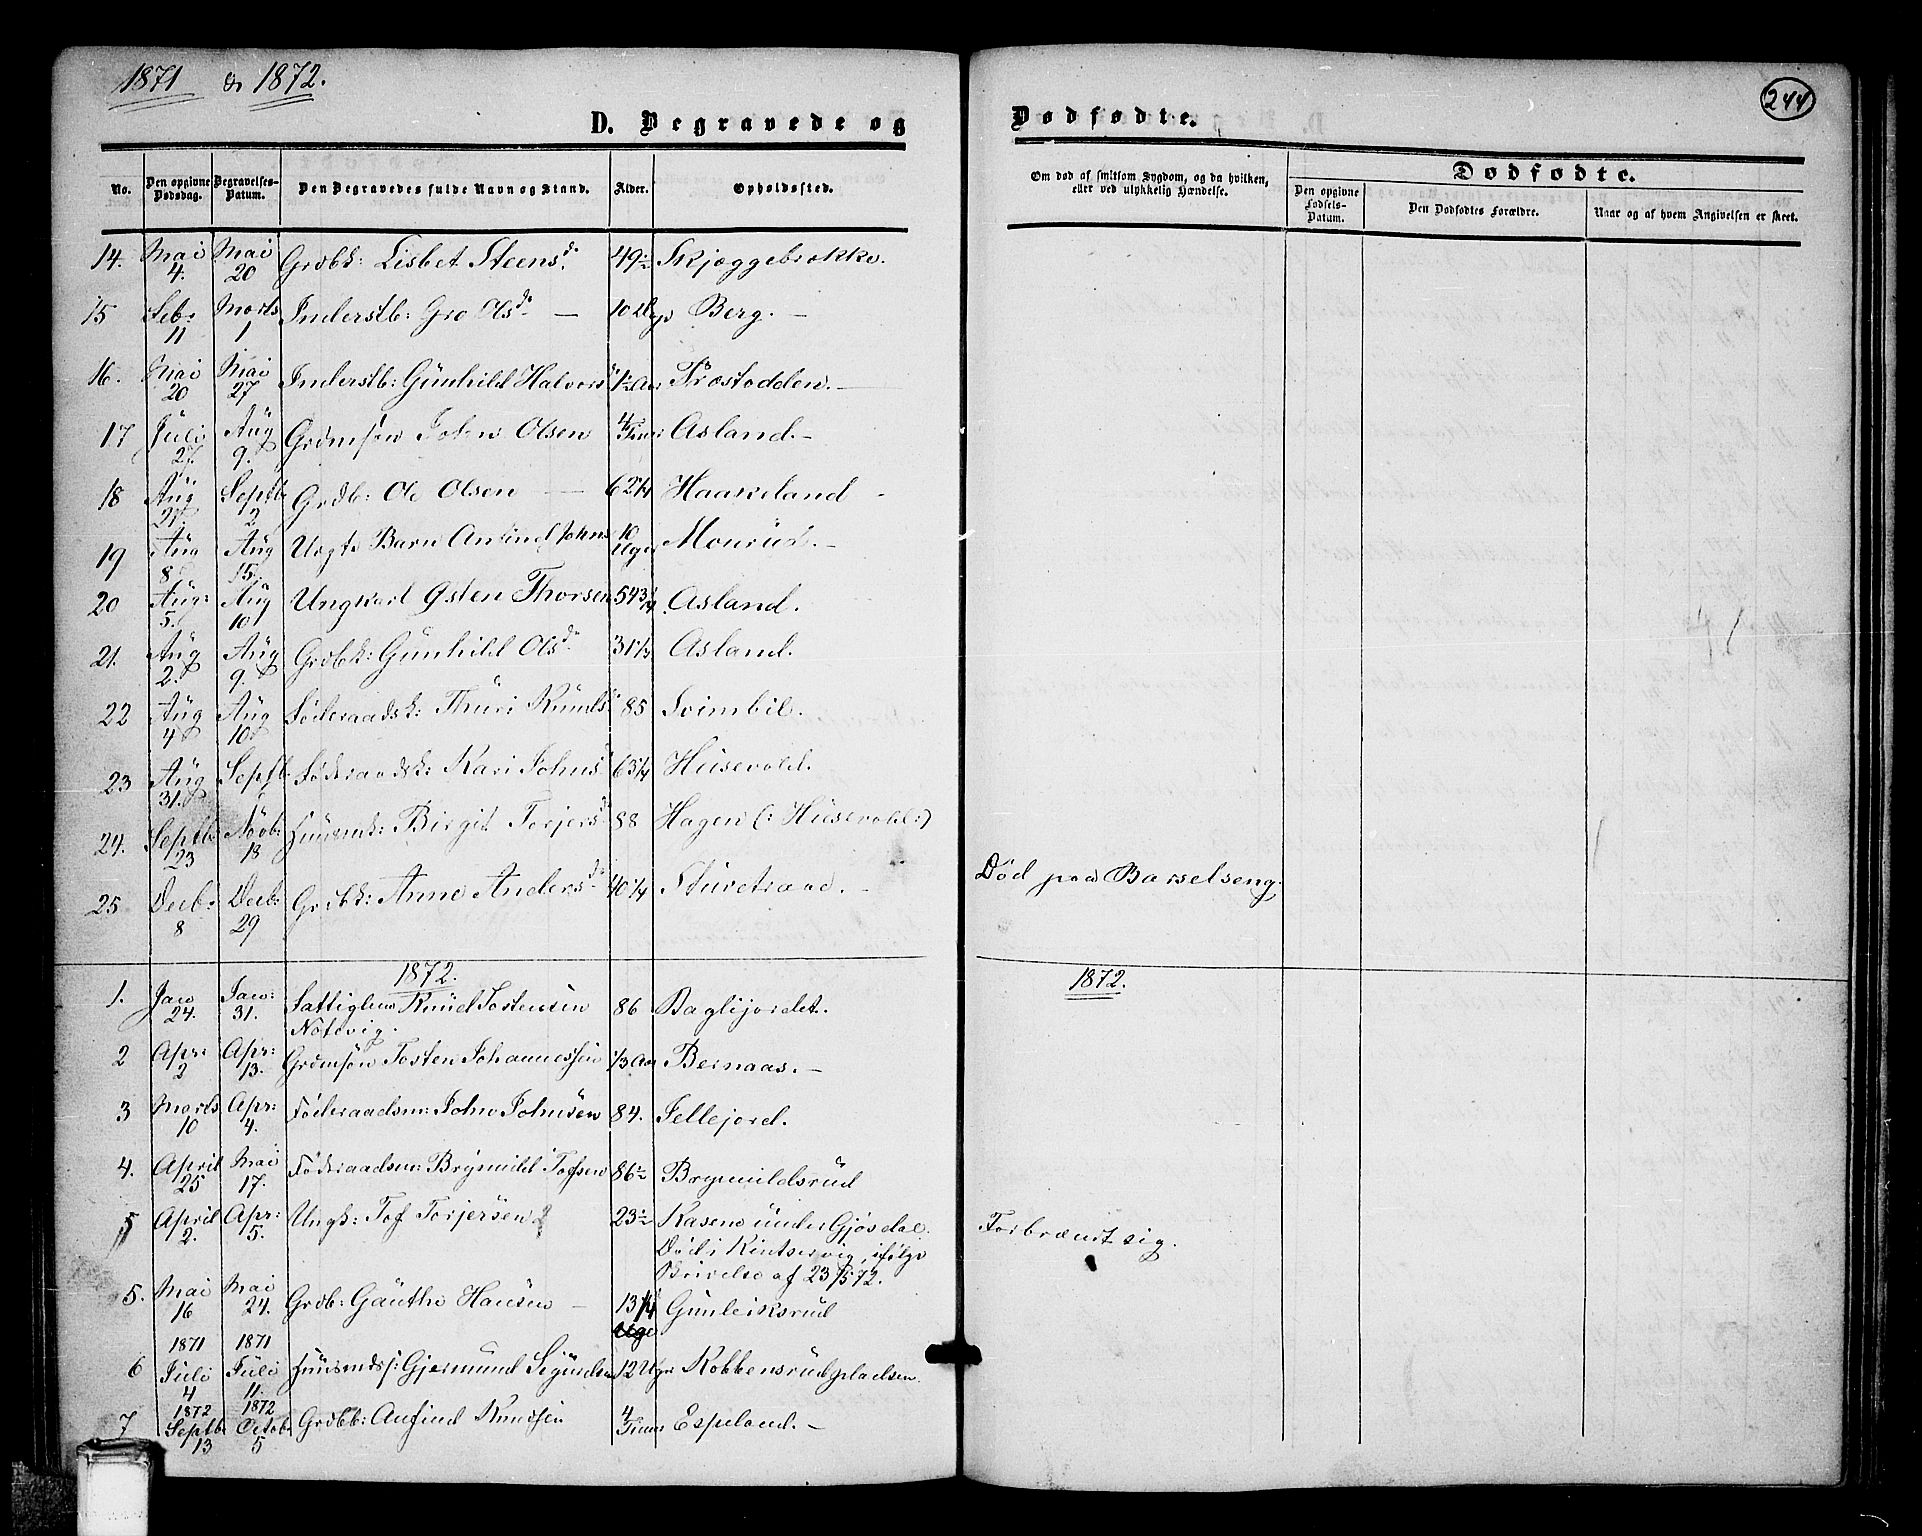 1871 & 1872.
244
D. Begravede og Dødfødte.
No. Den opgivne Dødsdag. Begravelses-Datum. Den Begravedes fulde Navn og Stand. Alder. Opholdssted.
Om død af smitsom Sygdom, og da hvilken, eller ved ulykkelig Hændelse.
Dødfødte.
Den opgivne Fødsels-Datum. Den Dødfødtes Forældre. Naar og af hvem Angivelsen er skeet.
14. Mai 4. Mai 20 Grdbk: Lisbet Steensd. 49½ Skjæggebrokke.
15 Feb: 11 Marts 1 Inderstb: Gro Olsd. — 10 Berg. —
16. Mai 20 Mai 27 Inderstb: Gunhild Halvors 1½ Aar Træstodden. —
17 Juli 27. Aug 9. Grdmsøn John Olsen 4 Timer Aasland. —
18 Aug 21. Septb 2 Grdb: Ole Olsen — 62¼ Haakeland
19 Aug 8 Aug 15. Uægte Barn Anfind Johns 10 Uger Mourud. —
20 Aug: 5. Aug 10 Ungkarl Østen Thorsen 54¾ Aasland.
21. Aug 2. Aug 9. Grdbk: Gunhild Olsd. 31¼ Aasland.
22 Aug 4 Aug 10 Föderaadsk: Thuri Knuds 85 Svimbil.
23 Aug 31. Septb. Föderaadsk: Kari Johns 63¼ Husevold.
24. Septb 23 Novb: 18 Huusmk: Birgit Torjersd 88 Hagen (: Husevold:)
25 Decb: 8 Decb: 29 Grdbk: Anne Andersd. 40¼ Sturetraae. — Död paa Barselseng.
1872. 1872.
1. Jan 24. Jan: 31. Fattiglem Knud Tostensen 86 Baglijordet.
Notevig.
2 Apr: 2 Apr: 13. Grdmsøn Tosten Johannessen 1/3 Aar Bernaas. —
3 Marts 10 Apr: 4. Föderaadsm: John Johnsen 84. Jellejord.
4. April 25 Mai 17. Föderaadsm: Brynild Tofsen 86½ Brynildsrud
5 April 2. Apr: 5. Ungk: Tof Torjersen 23½ Kasene under Gjøsdal. Forbrændt sig.
Död i Kintservig, ifølge
Skrivelse af 23/5 72.
5. Mai 16 Mai 24. Grdb: Gauthe Hansen — 13¼ Gunleiksrud
Uge
6 1871 Juli 4 1871 Juli 11. Huusmds: Gjermund Sigurdsen 12 Uger Kobbensrudpladsen.
7 1872 Septb: 13 1872 Octob: 5 Grdbb: Anfind Knudsen 4 Timer Espeland. —